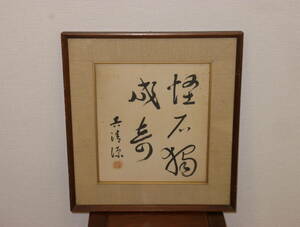 怪石獨
成奇
呉清源